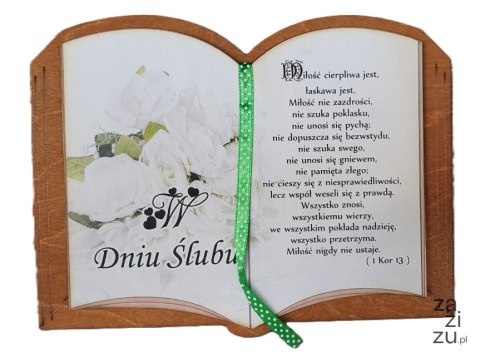 W
Dniu Ślubu
Miłość cierpliwa jest,
łaskawa jest.
Miłość nie zazdrości,
nie szuka poklasku,
nie unosi się pychą;
nie dopuszcza się bezwstydu,
nie szuka swego,
nie unosi się gniewem,
nie pamięta złego;
nie cieszy się z niesprawiedliwości,
lecz współ weseli się z prawdą.
Wszystko znosi,
wszystkiemu wierzy,
we wszystkim pokłada nadzieję,
wszystko przetrzyma.
Miłość nigdy nie ustaje.
( 1 Kor 13 )
za
zi
zu.pl